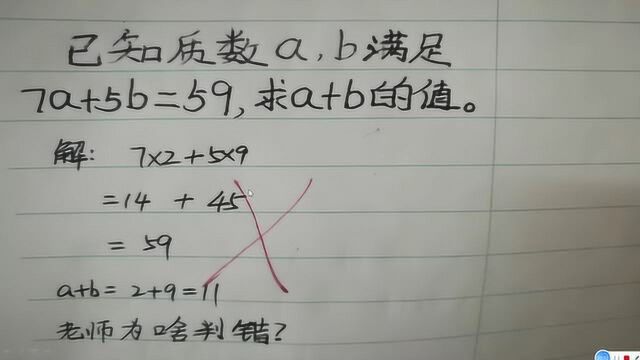 已知质数a,b满足
7a+5b=59,求a+b的值。
解: 7×2+5×9
=14 + 45
= 59
a+b= 2+9=11
老师为啥判错?